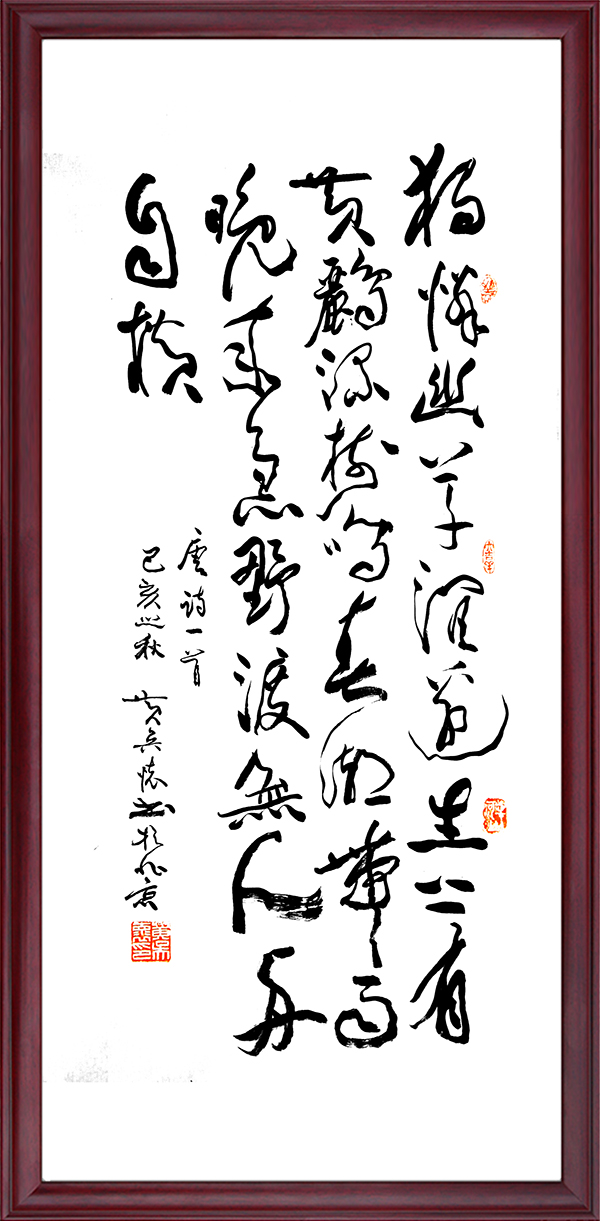 獨憐幽草澗邊生上有
黄鸝深樹鳴春潮帶雨
晚来急野渡無人舟
自横
唐诗一首
己亥之秋 黄兵懷书於北京